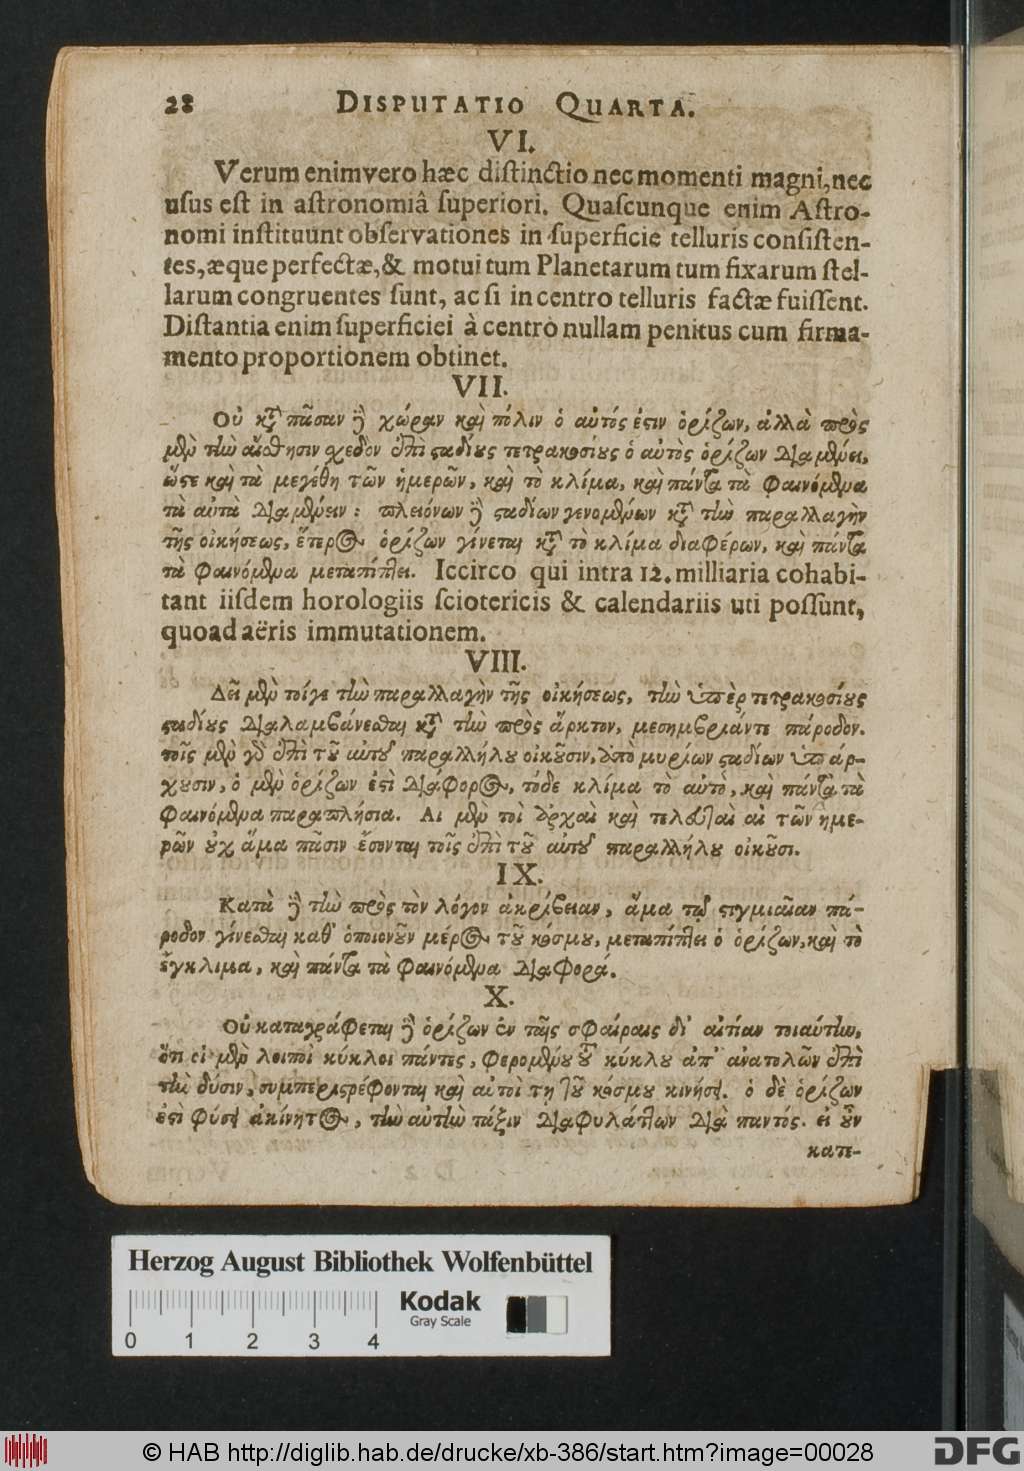 28 DISPUTATIO QUARTA.
VI.
Verum enimvero hæc distinctio nec momenti magni, nec
usus est in astronomiâ superiori. Quascunque enim Astro-
nomi instituunt observationes in superficie telluris consisten-
tes, æque perfectæ, & motui tum Planetarum tum fixarum stel-
larum congruentes sunt, ac si in centro telluris factæ fuissent.
Distantia enim superficiei à centro nullam penitus cum firma-
mento proportionem obtinet.
VII.
Οὐ κατὰ πᾶσαν δὲ χώραν καὶ πόλιν ὁ αὐτός ἐστιν ὁρίζων, ἀλλὰ πρὸς
μὲν τὴν αἴσθησιν σχεδὸν ἐπὶ σταδίους τετρακοσίους ὁ αὐτὸς ὁρίζων διαμένει,
ὥστε καὶ τὰ μεγέθη τῶν ἡμερῶν, καὶ τὸ κλίμα, καὶ πάντα τὰ φαινόμενα
τὰ αὐτὰ διαμένειν: πλειόνων δὲ σταδίων γενομένων κατὰ τὴν παραλλαγὴν
τῆς οἰκήσεως, ἕτερος ὁρίζων γίνεται κατὰ τὸ κλίμα διαφέρων, καὶ πάντα
τὰ φαινόμενα μεταπίπτει. Iccirco qui intra 12. milliaria cohabi-
tant iisdem horologiis sciotericis & calendariis uti possunt,
quoad aëris immutationem.
VIII.
Δεῖ μὲν τοίγε τὴν παραλλαγὴν τῆς οἰκήσεως, τὴν ὑπὲρ τετρακοσίους
σταδίους διαλαμβάνεσθαι κατὰ τὴν πρὸς ἄρκτον, μεσημβρίαντε πάροδον.
τοῖς μὲν γὰρ ἐπὶ τοῦ αὐτοῦ παραλλήλου οἰκοῦσιν, ἀπὸ μυρίων σταδίων ὑπάρ-
χουσιν, ὁ μὲν ὁρίζων ἐστὶ διάφορος, τόδε κλίμα τὸ αὐτὸ, καὶ πάντα τὰ
φαινόμενα παραπλήσια. Αἱ μὲν τοὶ ἀρχαὶ καὶ τελευταὶ αἱ τῶν ἡμε-
ρῶν οὐχ ἅμα πᾶσιν ἔσονται τοῖς ἐπὶ τοῦ αὐτοῦ παραλλήλου οἰκοῦσι.
IX.
Κατὰ δὲ τὴν πρὸς τὸν λόγον ἀκρίβειαν, ἅμα τῷ στιγμιαῖαν πά-
ροδον γίνεσθαι καθ' ὁποιονοῦν μέρος τοῦ κόσμου, μεταπίπτει ὁ ὁρίζων, καὶ τὸ
ἔγκλιμα, καὶ πάντα τὰ φαινόμενα διαφορά.
X.
Οὐ καταγράφεται δὲ ὁρίζων ἐν ταῖς σφαίραις δι' αἰτίαν τοιαύτην,
ὅτι οἱ μὲν λοιποὶ κύκλοι πάντες, φερομένου τοῦ κύκλου ἀπ' ἀνατολῶν ἐπὶ
τὴν δύσιν, συμπεριστρέφονται καὶ αὐτοὶ τῇ τοῦ κόσμου κινήσει. ὁ δὲ ὁρίζων
ἐστὶ φύσει ἀκίνητος, τὴν αὐτὴν τάξιν διαφυλάττων διὰ παντός. εἰ οὖν
κατε-
Herzog August Bibliothek Wolfenbüttel
Kodak
Gray Scale
0 1 2 3 4
© HAB http://diglib.hab.de/drucke/xb-386/start.htm?image=00028
DFG